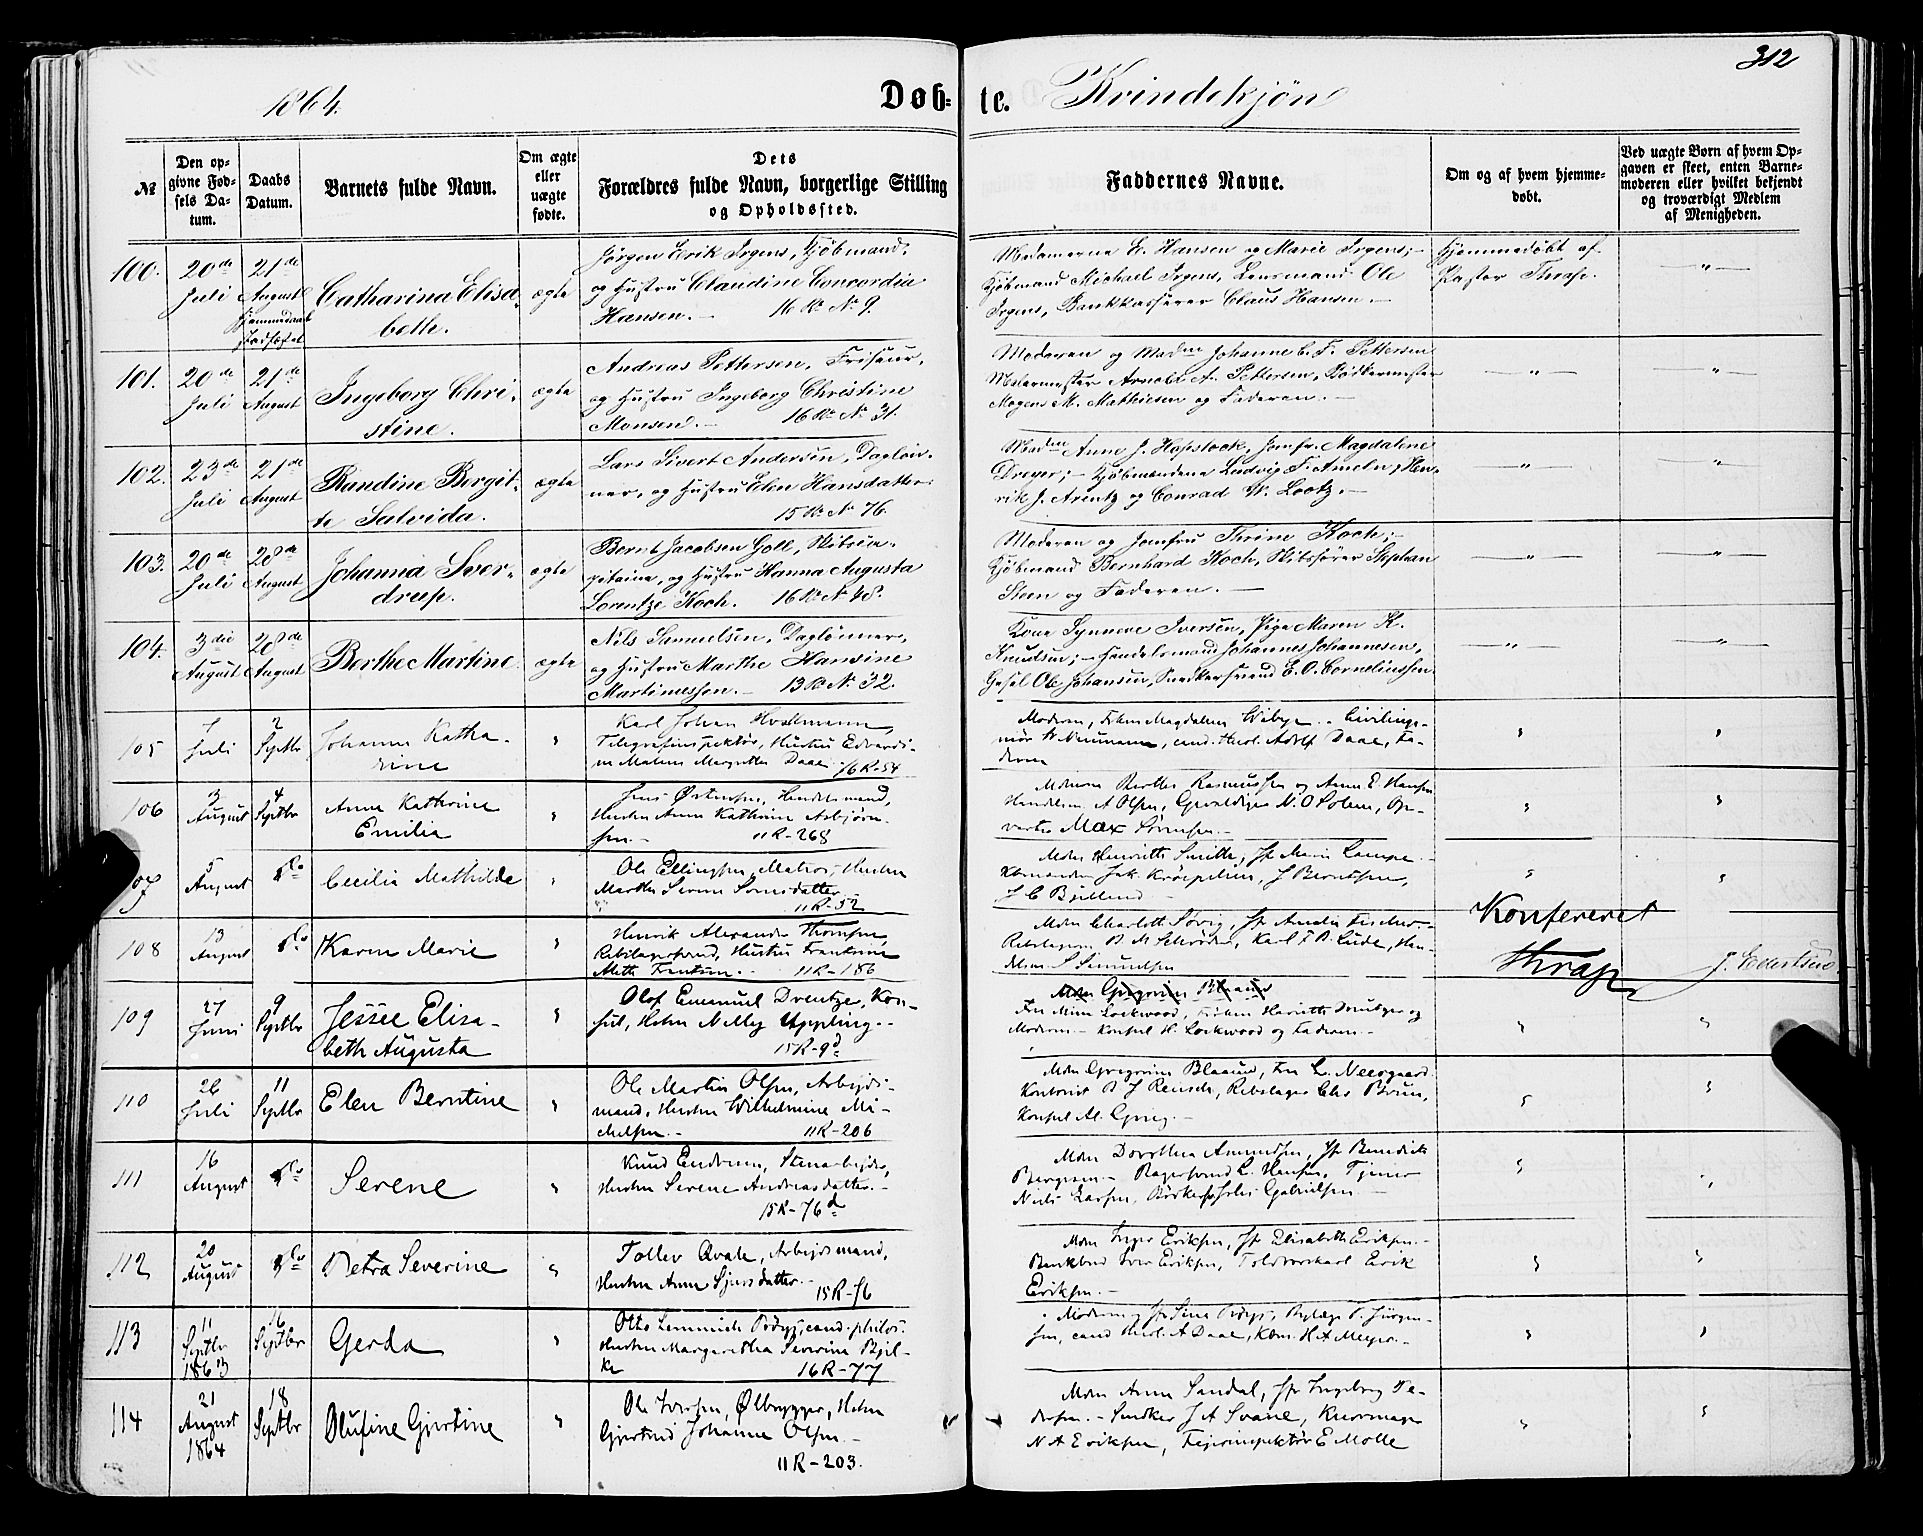 312
1864.
Døb-
te.
Kvindekjøn
№
Den op-
givne Fød-
sels Da-
tum.
Daabs
Datum.
Barnets fulde Navn.
Om ægte
eller
uægte
fødte.
Dets
Forældres fulde Navn, borgerlige Stilling
og Opholdssted.
Faddernes Navne.
Om og af hvem hjemme-
døbt.
Ved uægte Børn af hvem Op-
gaven er skeet, enten Barne-
moderen eller hvilket bekjendt
og troværdigt Medlem
af Menigheden.
100.
20de
Juli
21de
August
Catharina Elisa-
beth.
ægte
Jörgen Erik Irgens, Kjöbmand
og Hustru Claudine Concordia
Hansen. — 16 R. No 9.
Madamerne E. Hansen og Marie Irgens; —
Kjöbmand Michael Irgens, Lensmand Ole
Irgens, Bankkasserer Claus Hansen. —
Hjemmedöbt af
Pastor Thrap.
—"—
101.
20de
Juli
21de
August
Ingeborg Chri-
stine.
ægte
Andreas Pettersen, Friseur,
og Hustru Ingeborg Christine
Monsen. — 16 R. No 31.
Moderen og Madme Johanne C. F. Pettersen
Malermester Arnold A. Pettersen, Bödkermester
Mogens M. Mathiesen og Faderen. —
—"—
—"—
102.
23de
Juli
21de
August
Randine Birgit-
te Salvida.
ægte
Lars Sivert Andersen, Daglön-
ner, og Hustru Elen Hansdatter
15 R. No 76.
Madme Anne J. Hopstock, Jomfr. Magdalene
Dreyer; — Kjöbmændene Ludvig F. Ameln, Hen-
rik J. Arentz og Conrad W. Lootz. —
—"—
—"—
103.
20de
Juli
28de
August
Johanna Sver-
drup.
ægte
Bernt Jacobsen Goll, Skibska-
pitaine, og Hustru Hanna Augusta
Lorentze Koch. 16 R. No 48.
Moderen og Jomfru Thrine Koch; —
Kjöbmand Bernhard Koch, Skibsförer Stephan
Steen og Faderen. —
—"—
—"—
104.
3die
August
28de
August
Berthe Martine.
ægte
Nils Samuelsen, Daglönner,
og Hustru Marthe Hansine
Martinussen. — 13 R. No 32.
Kone Synneve Iversen, Pige Maren K.
Knudsen; — Handelsmand Johannes Johannesen,
Gesel Ole Johansen, Snedkersvend E. O. Corneliussen
—"—
—"—
105
7
Juli
2
Septbr
Johanne Katha-
rine
"
Karl Johan
Telegrafinspektør, Hustru Edvardi-
ne Malene Margrethe Daae 16R-54
Moderen, Frøken Magdalena Wibye. - Civilinge-
niør W Neumann, cand. theol. Adolf Daae, Fa-
deren
"
"
106
3
August
4
Septbr
Anna Kathrine
Emilia
"
Jens Østensen, Handelsmand,
Hustru Anne Kathrine Asbjørn-
sen. — 11R-268
Moderen Berthe Rasmussen og Anne E. Hansen
Handelsm. A Olsen, N. O Solem, Op-
varter Max Sørensen. —
"
"
107
5
August
Do
Cecilia Mathilde
"
Ole Ellingsen, Matros, Hustru
Marthe Serine
11R-52
Mdm Henriette Smitt, Jfr Marie Lampe. —
J Berntsen,
J C Bjelland
"
"
108
13
August
Do
Karen Marie
"
Henrik Alexander Thomsen
Rebslagersvend, Hustru
Mette 11R-186
Mdm Charlotte Sørig, Jfr Amalia Fischer. —
Rebslagerne B. M. Schrøder, Karl F. B. Lude, Han-
delsm. S Simundsen
Konfereret
Thrap
J. Edertsen.
109
27
Juni
9
Septbr
Jessie Elisa-
beth Augusta
"
Olof Emanuel Drentze, Kon-
sul, Hustru Nelly Uppling. —
15R-9d
Mdm Gregorine Blaauw
Fru Mina Lockwood, Frøken Harriette og
Moderen. — Konsul H. Lockwood og Faderen. —
"
"
110
26
Juli
11
Septbr
Elen Berntine
"
Ole Martin Olsen, Arbejds-
mand, Hustru Wilhelmine Mi-
chelsen. — 11R-206
Mdm Gregorine Blaauw, Fru L. Neergaard.
Kontorist B J Reusch, Rebslager Chs Brun,
Konsul Al. Grieg. —
"
"
111
16
August
Do
Serene
"
Knud Endresen, Stenarbejder,
Hustru Serene Andreasdatter. —
15R-76d
Mdm Dorothea Amundsen, Jfr Benedicte
Bergesen. — Bagersvend L. Hansen, Tjener
Niels Larsen, Gabrielsen.
"
"
112
20
August
Do
Petra Severine
"
Tollev Qvale, Arbejdsmand,
Hustru Anne Sjursdatter. —
15R-76
Mdm Inger Eriksen, Jfr Elisabeth Eriksen. —
Bankbud Iver Eriksen, Toldvoskarl Eirik
Eriksen. —
"
"
113
11
Septbr
1863
16
Septbr
Gerda
"
Otto Lemmich cand. philos.
Hustru Margaretha Severine Bjel-
ke 16R-77
Moderen, Jfr Sina Jürgen-
sen, cand theol. A Daae, Kbm. H A Meyer. —
"
"
114
21
August
1864
18
Septbr
Olufine Gjertine
"
Ole Iversen, Ølbrygger, Hustru
Gjertrud Johanne Olsen. —
11R-203.
Mdm Anna Sandal, Jfr Ingeborg Pe-
dersen. — Snedker J A Svane,
N A Eriksen, Fejeinspektør E Molle
"
"